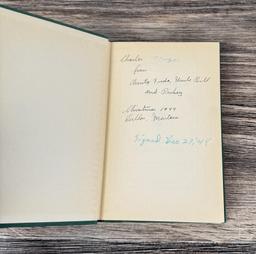 Charles
from
Aunty Freda, Uncle Bill
and Rodney
Christmas 1949
Dillon, Montana
Signed Dec 27, '49